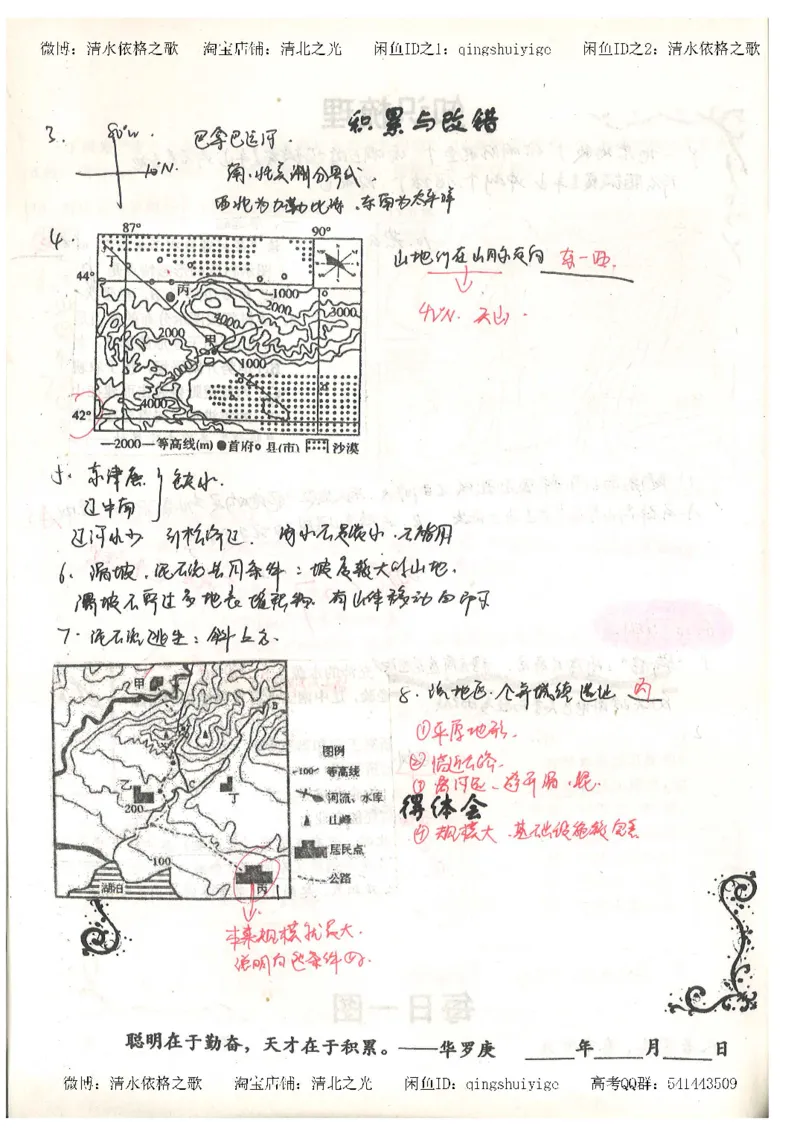 微博：清水依格之歌 淘宝店铺：清北之光 闲鱼ID之1：qingshuiyige 闲鱼ID之2：清水依格之歌
积累与改错
3. 80°W. 巴拿马运河.
10°N. 南.北美洲分界线.
西北为加勒比海.东南为太平洋
4.
87° 90°
丁
44° 丙 1000
2000
4000 3000
2000 甲
1000
4000
42°
—2000—等高线(m) ●首府 ○县(市) 沙漠
山地们在山间东向 东—西.
42°N. 天山.
5. 京津唐 缺水.
辽中南
辽河水少 引松济辽.
6. 滑坡.泥石流共同条件：坡度较大的山地.
滑坡不需过多地表堆积物.有山体移动即可
7. 泥石流逃生：斜上方.
甲 B
乙 丁
200
100
湖泊 丙
图例
—100—等高线
河流、水库
山峰
居民点
公路
8. 该地区 丙
①平原地形.
②临近公路.
得体会
④规模大.基础设施较完善
本来规模就最大.
说明自然条件好.
聪明在于勤奋，天才在于积累。——华罗庚 _____年_____月_____日
微博：清水依格之歌 淘宝店铺：清北之光 闲鱼ID：qingshuiyige 高考QQ群：541443509